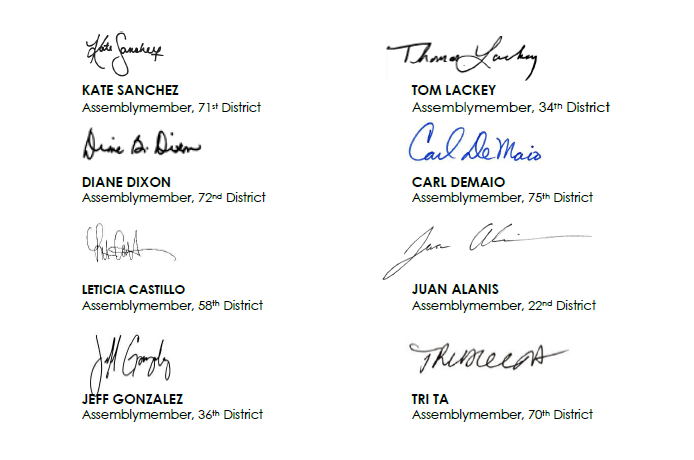 Kate Sanchez
KATE SANCHEZ
Assemblymember, 71st District
Thomas Lackey
TOM LACKEY
Assemblymember, 34th District
Diane B. Dixon
DIANE DIXON
Assemblymember, 72nd District
Carl DeMaio
CARL DEMAIO
Assemblymember, 75th District
LETICIA CASTILLO
Assemblymember, 58th District
Juan
JUAN ALANIS
Assemblymember, 22nd District
Jeff Gonzalez
JEFF GONZALEZ
Assemblymember, 36th District
TRI TA
Assemblymember, 70th District